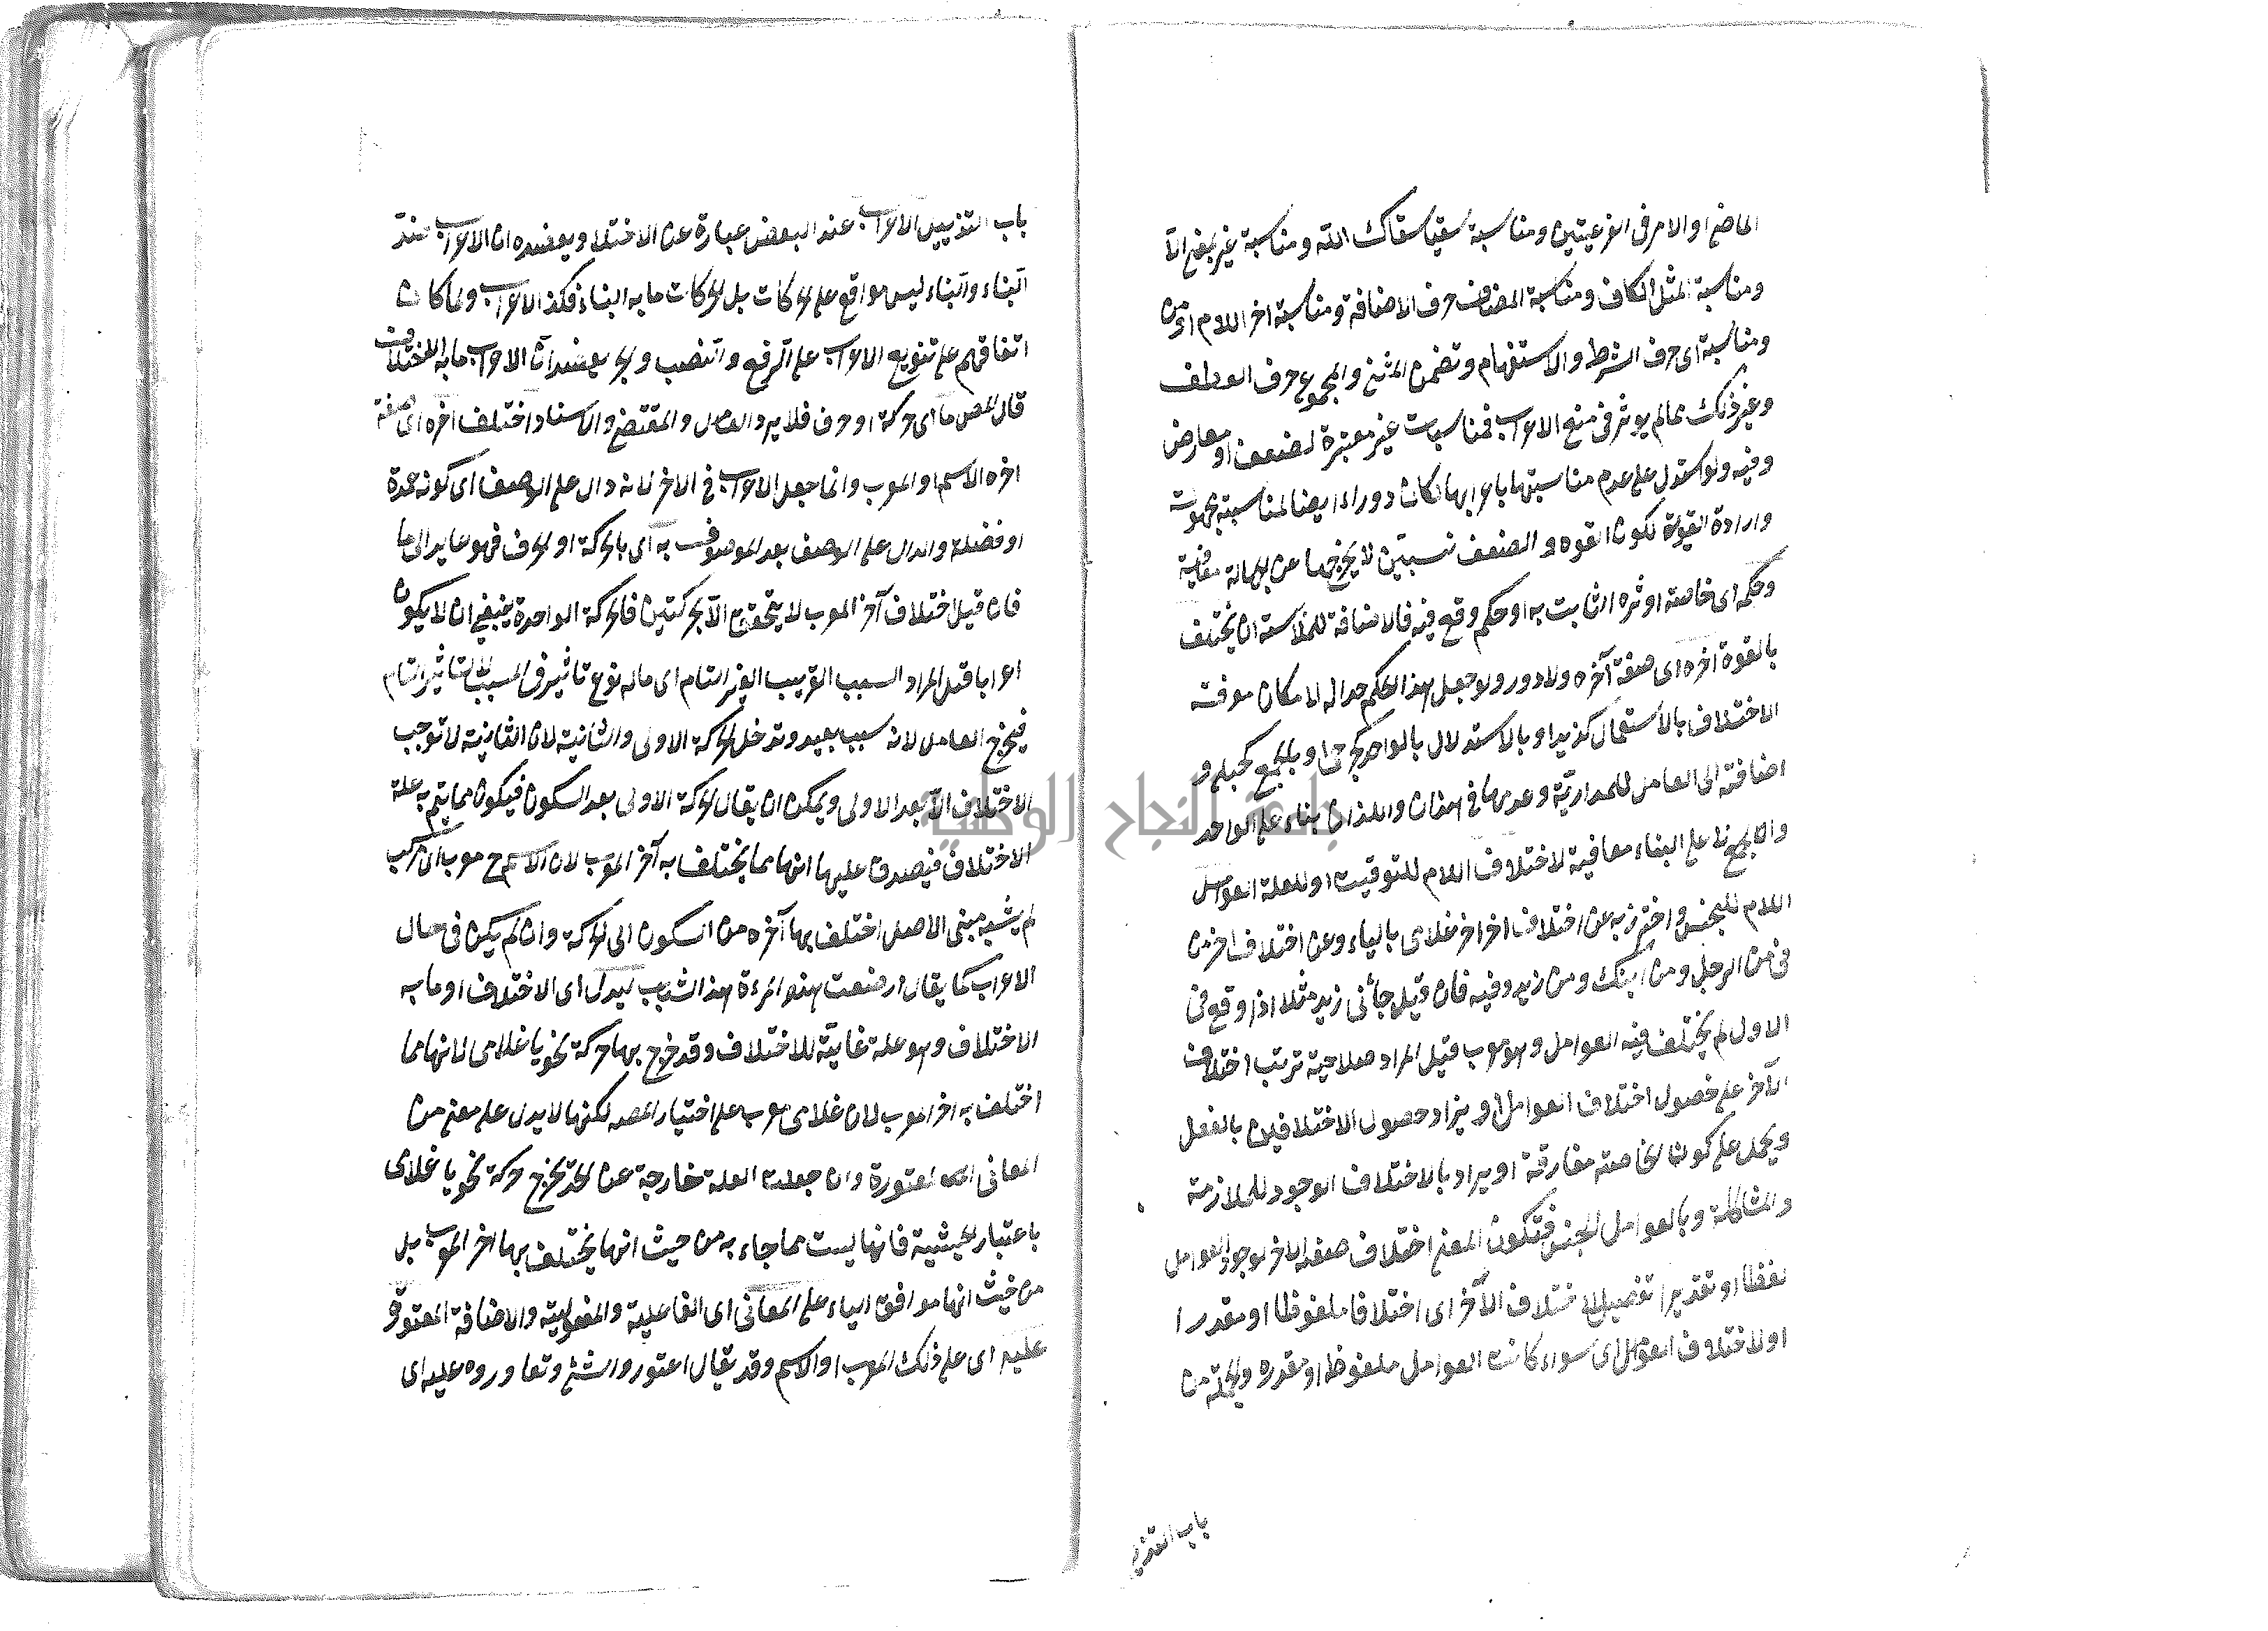 الماضي او الامر في الفرعيتين ومناسبة سقيا سقاك الله ومناسبة غير بمعنى الا
ومناسبة المثل الكاف ومناسبة المضاف حرف الاضافة ومناسبة اخر اللام اى من
ومناسبة اى حرف الشرط والاستفهام وتضمن المثنى والمجموع حرف العطف
وغير ذلك مما لم يوثر في منع الاعراب فمناسبات غير معتبرة لضعف او معارض
وفيه ولو استدل على عدم مناسبتها باعرابها لكان دورا ايضا لمناسبته بجهات
وارادة القوية لكون القوه والضعف نسبتين لا يخرجها عن الجهالة
وحكمه اى خاصته اوثره الثابت به او حكم وقع فيه فالاضافة للملابسته ان يختلف
بالقوة اخره اى صفة آخره ولا دور ولو جعل هذا الحكم حدا له لامكان معرفته
الاختلاف بالاستعمال كزيد او بالاستدلال بالواحد او بالجمع كحبلى و
اضافته الى العامل وعدمها في هذان واللذان بناء على الواحد
والجمع على البناء لاختلاف اللام للتوقيت او للعلة العوامل
اللام للجنس واحترز به عن اختلاف اخر اخر غلامى بالياء وعن اختلاف اخر من
في من الرجل ومن ابنك ومن زيد وفيه فان قيل جائني زيد مثلا اذا وقع في
الاول لم يختلف فيه العوامل وهو معرب قيل المراد صلاحية ترتب اختلاف
الآخر على حصول اختلاف العوامل او يراد حصول الاختلافين بالفعل
ويحمل على كون الخاصته مفارقة او يراد بالاختلاف الوجود للملازمة
والمشاكلة وبالعوامل الجنس فتكون المعنى اختلاف صفة الاخر بوجود العوامل
لفظا او تقديرا تفصيل لاختلاف الآخر اى اختلافا ملفوظا او مقدرا
او لاختلاف العوامل اى سواء كانت العوامل ملفوظا او مقدره والجملة من
باب التذييل
باب التذييل الاعراب عند البعض عبارة عن الاختلاف ويعضده ان الاعراب ضد
البناء والبناء ليس مواقع على الحركات بل الحركات ما به البناء فكذا الاعراب ولما كان
اتفاقهم على تنويع الاعراب على الرفع والنصب والجر يعضد ان الاعراب ما به الاختلاف
قال المص ما اى حركة او حرف فلا يرد العامل والمقتضى والاسناد اختلف اخره اى صفة
اخره الاسم او المعرب وانما جعل الاعراب في الاخر لانه دال على الوصف اى كونه عمدة
او فضلة والدال على الوصف بعد الموصوف به اى بالحركة او الحرف فهو عايد الى ما
فان قيل اختلاف آخر المعرب لا يتحقق الا بحركتين فالحركة الواحدة ينبغي ان لا يكون
اعرابا قيل المراد السبب القريب الغير التام اى ماله نوع تاثير في المسبب لا التاثير التام
فيخرج العامل لانه سبب بعيد وتدخل الحركة الاولى والثانية لان الثانية لا توجب
الاختلاف الا بعد الاولى ويمكن ان يقال الحركة الاولى بعد السكون فيكون مما يتم به علة
الاختلاف فيصدق عليها انها مما يختلف به آخر المعرب لان الاسم ح معرب ان ركب
لم يشبه مبنى الاصل اختلف بها آخره من السكون الى الحركة وان لم يكن في حال
الاعراب كما يقال ارضعت هذه المرءة هذا الشاب ليدل اى الاختلاف او ما به
الاختلاف وهو علة غائية للاختلاف وقد خرج بها حركة نحو يا غلامى لانها مما
اختلف به اخر المعرب لان غلامى معرب على اختيار المصه لكنها لا يدل على معنى من
المعانى المعتورة وان جعلت العلة خارجة عن الحد يخرج حركة نحو يا غلامى
باعتبار الحيثية فانها ليست مما جاء به من حيث انها يختلف بها اخر المعرب بل
من حيث انها موافق الياء على المعاني اى الفاعلية والمفعولية والاضافة المعتورة
عليه اى على ذلك المعرب او الاسم وقد يقال اعتوروا الشئ وتعاوروه عليه اى
جامعة النجاح الوطنية